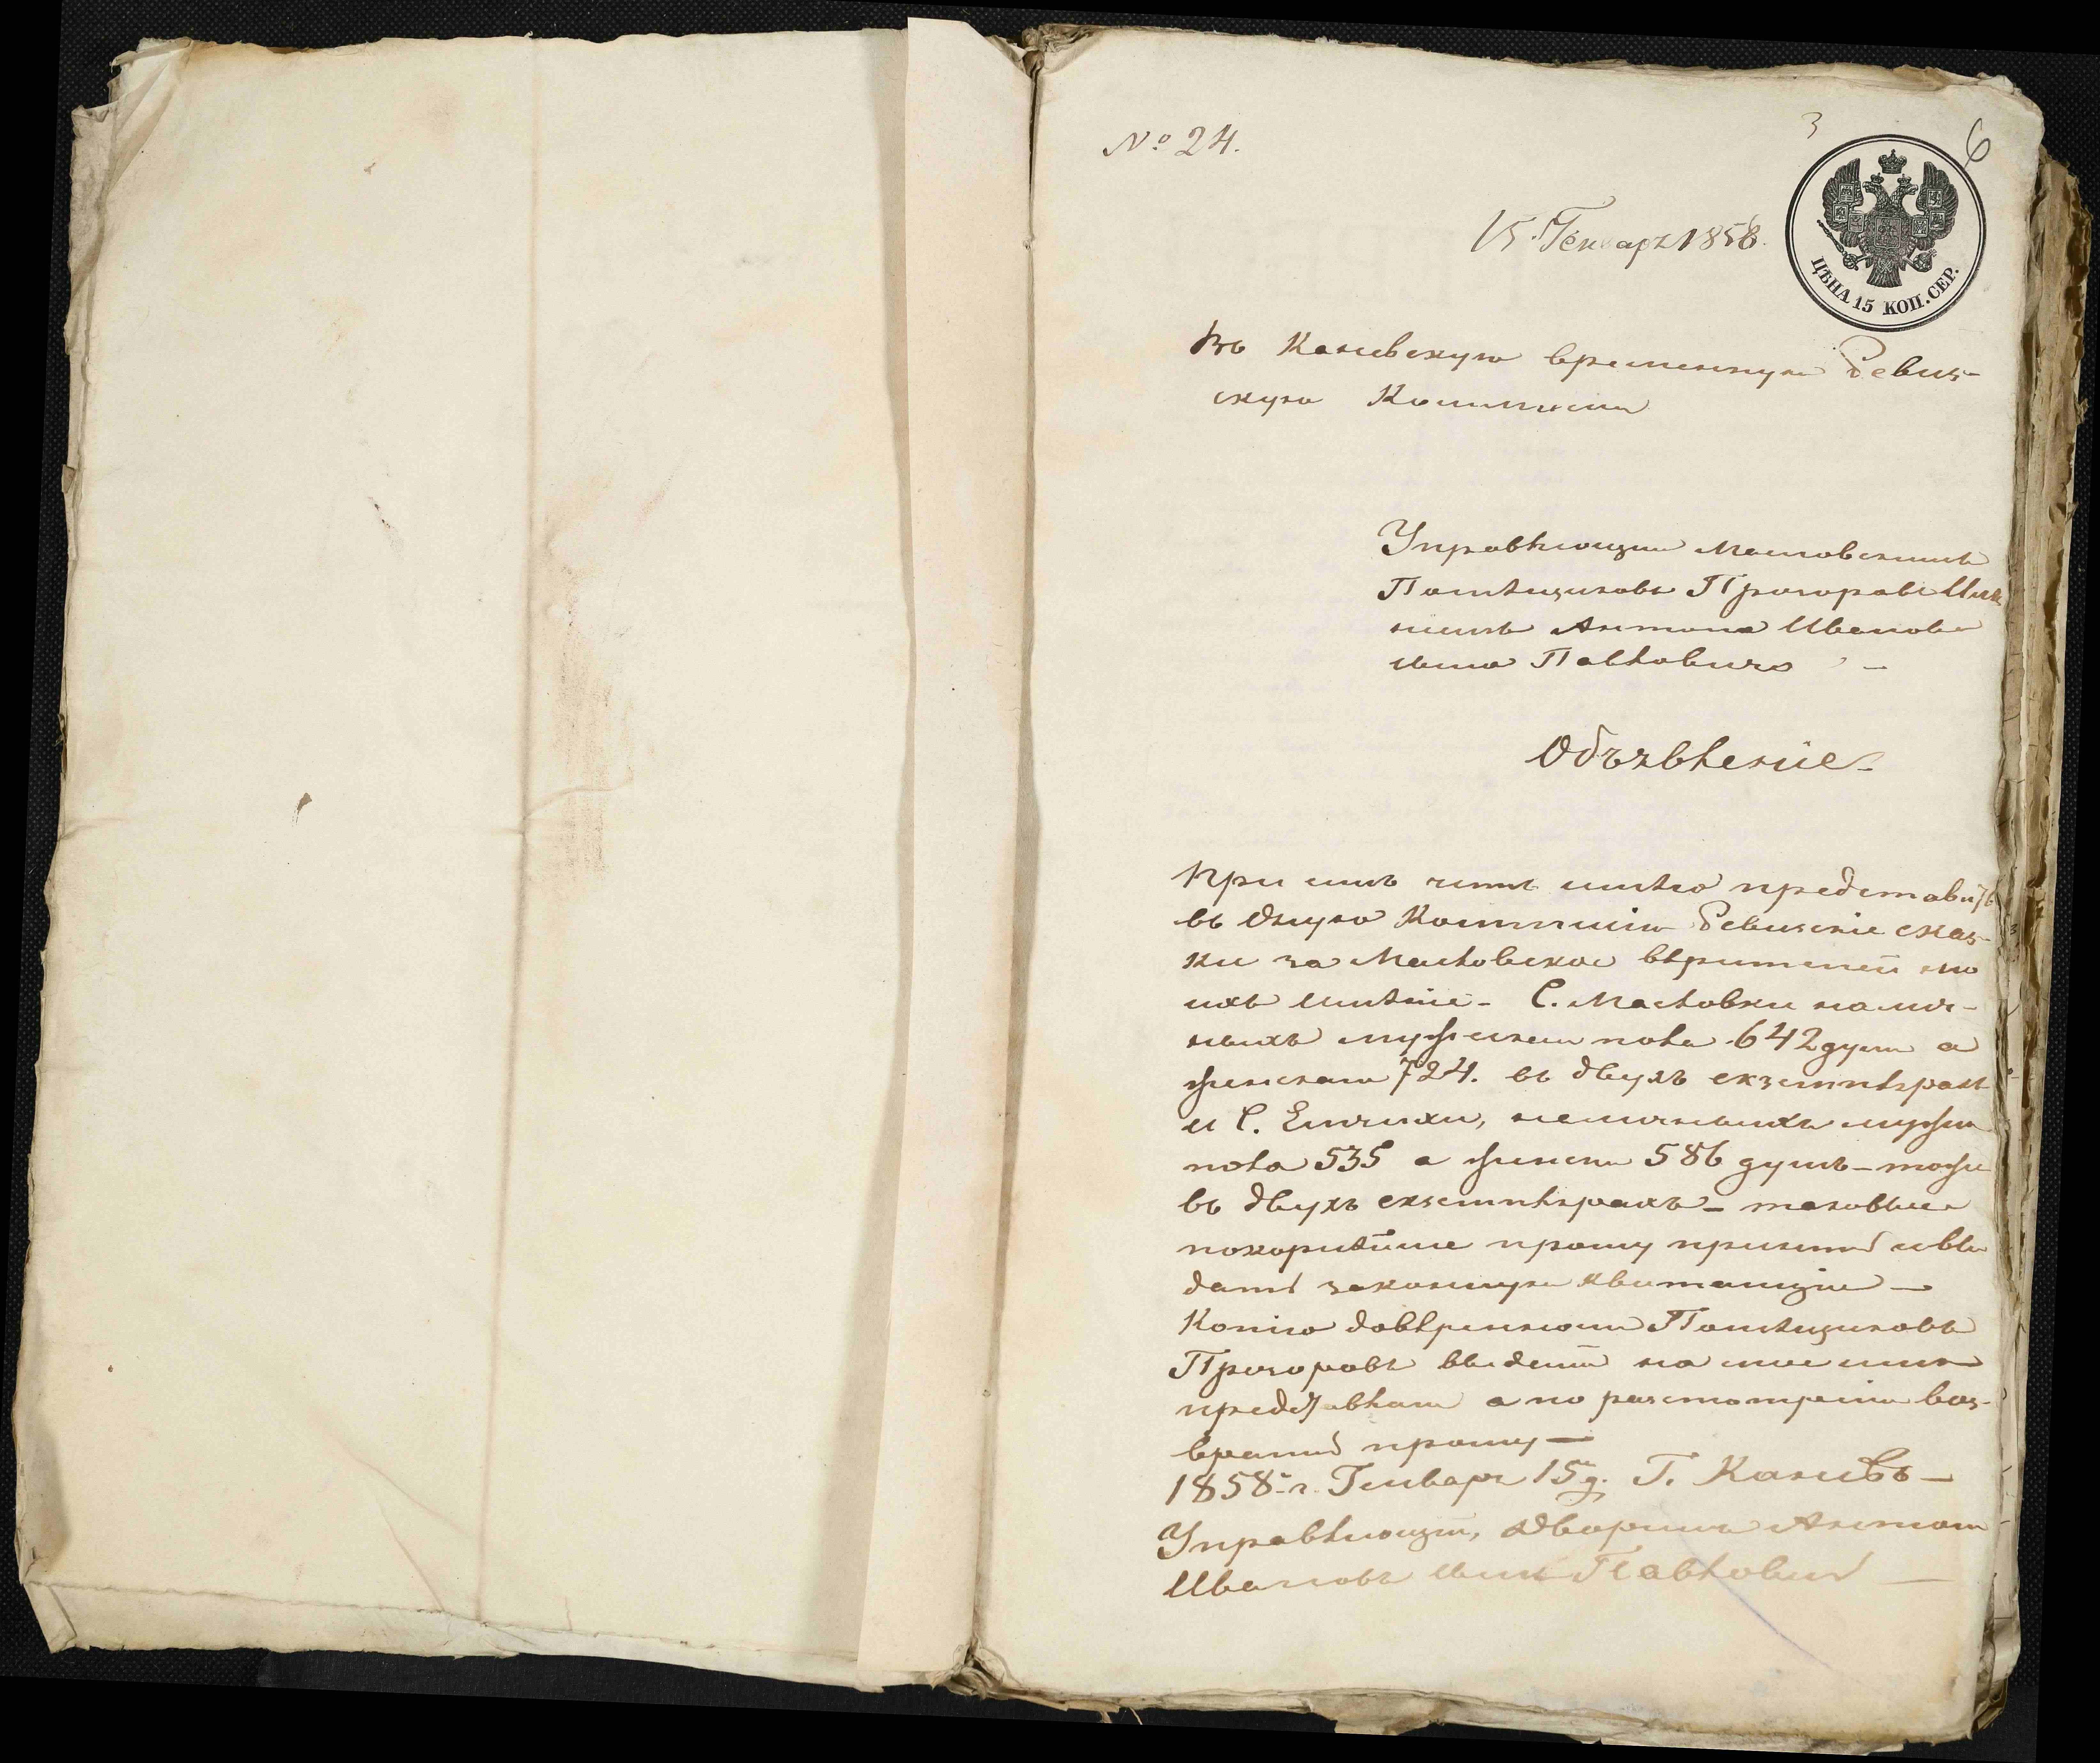 № 24.
3
6
15. Генваря 1858.
ЦѢНА 15 КОП. СЕР.
Въ Каневскую временную Ревиз-
скую Коммисiю
Управляющаго Масловскимъ
Помѣщиковъ Прогоровъ
Антона Иванова
сына Павловича —
Объявленiе.
При симъ честь имѣю представить
въ оную Коммисiю Ревизскiе сказ-
ки за Масловское вѣрителей мо
ихъ имѣнiе - С. Масловки налич-
ныхъ мужеска пола 642 душ а
женскаго 724. въ двухъ екземплярахъ
и С. Емчихи, наличныхъ мужеск
пола 535 а женска 586 душъ - тоже
въ двухъ екземплярахъ - таковые
покорнѣйше прошу принять и вы
дать законную квитанцiю —
Копiю довѣренности Помѣщиковъ
Прогоровъ выданной на мое имя
представляю а по разсмотренiи воз-
вратить прошу —
1858 г. Генваря 15 д. Г. Каневъ —
Управляющiй, Дворянинъ Антон
Ивановъ сынъ Павлович —